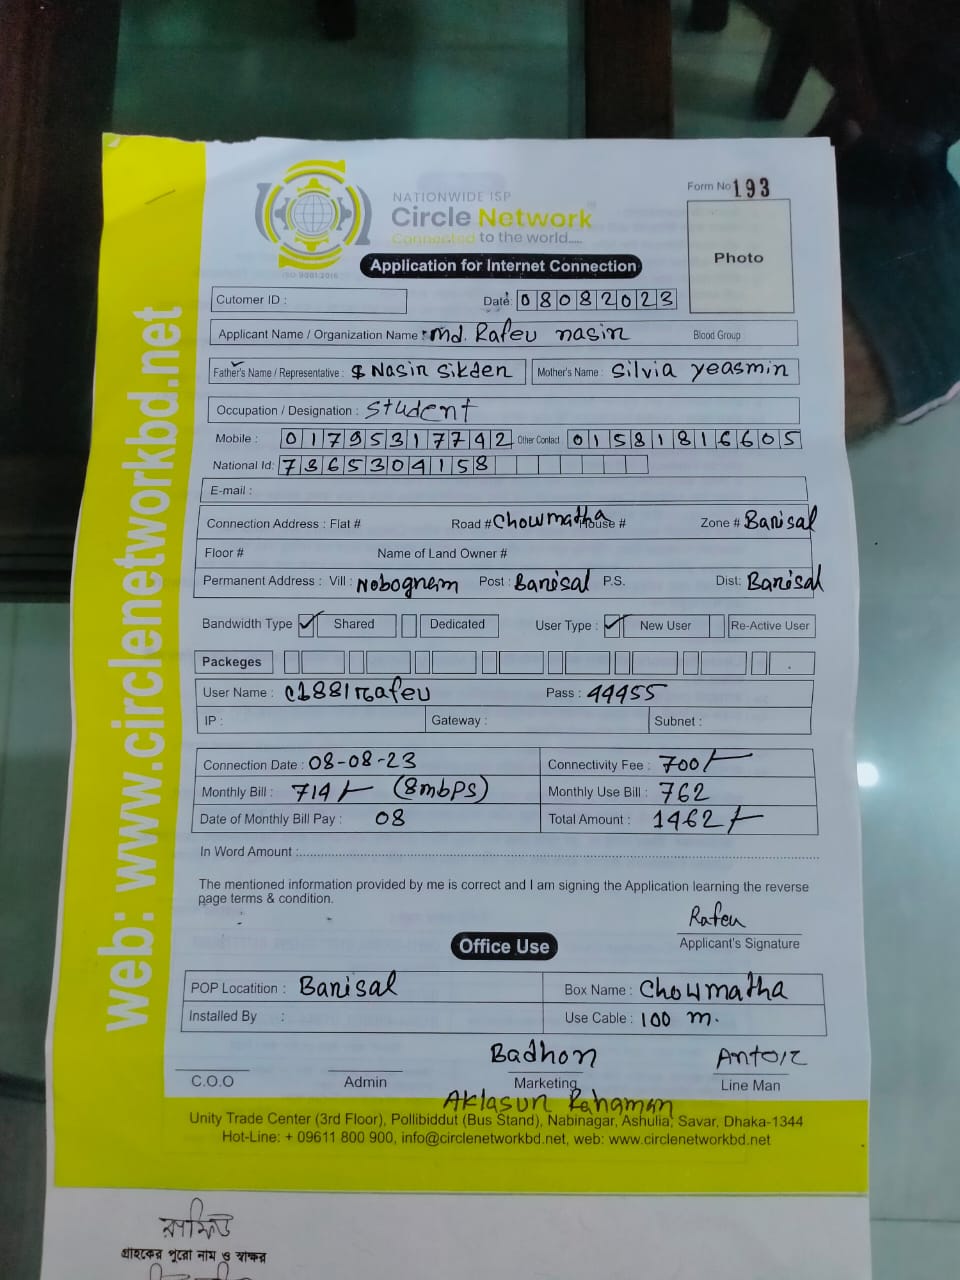 NATIONWIDE ISP
Circle Network
Connected to the world.....
ISO 9001:2015
Form No 193
Photo
Application for Internet Connection
Cutomer ID :
Date: 08082023
Applicant Name / Organization Name : md. Rafeu nasin Blood Group
Father's Name / Representative : Nasir Sikder Mother's Name : Silvia yeasmin
Occupation / Designation : Student
Mobile : 01795317742 Other Contact 01581816605
National Id: 7365304158
E-mail :
Connection Address : Flat # Road # Chowmatha House # Zone # Barisal
Floor # Name of Land Owner #
Permanent Address : Vill : Nobogram Post : Barisal P.S. Dist: Barisal
Bandwidth Type ✓ Shared Dedicated User Type : ✓ New User Re-Active User
Packeges
User Name : c1881rafeu Pass : 44455
IP : Gateway : Subnet :
Connection Date : 08-08-23 Connectivity Fee : 700/-
Monthly Bill : 714/- (8mbps) Monthly Use Bill : 762
Date of Monthly Bill Pay : 08 Total Amount : 1462/-
In Word Amount :
The mentioned information provided by me is correct and I am signing the Application learning the reverse
page terms & condition.
Rafeu
Applicant's Signature
Office Use
POP Locatition : Barisal Box Name : Chowmatha
Installed By : Use Cable : 100 m.
Badhon Antor
C.O.O Admin Marketing Line Man
Aklasur Rahaman
Unity Trade Center (3rd Floor), Pollibiddut (Bus Stand), Nabinagar, Ashulia, Savar, Dhaka-1344
Hot-Line: + 09611 800 900, info@circlenetworkbd.net, web: www.circlenetworkbd.net
web: www.circlenetworkbd.net
রাফিউ
গ্রাহকের পুরো নাম ও স্বাক্ষর